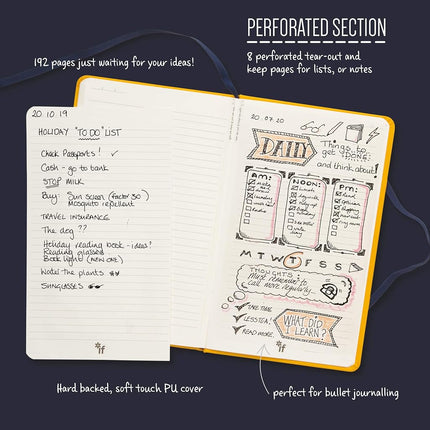 PERFORATED SECTION
192 pages just waiting for your ideas!
8 perforated tear-out and
keep pages for lists, or notes
20.10.19
HOLIDAY "TO DO" LIST
Check Passports! ✓
Cash - go to bank
STOP MILK
Buy: Sun screen (Factor 50)
Mosquito repellent
TRAVEL INSURANCE
The dog ??
Holiday reading book - ideas!
Reading glasses
Book light (NEW ONE)
Water the plants
SUNGLASSES
if
20.07.20
DAILY
Things to
get DONE
and think about!
AM:
NOON:
PM:
M T W T F S S
THOUGHTS
Must remember to
call more regularly...
TAKE TIME
LESS TEA!
READ MORE.
WHAT DID
I LEARN?
if
Hard backed, soft touch PU cover
perfect for bullet journalling